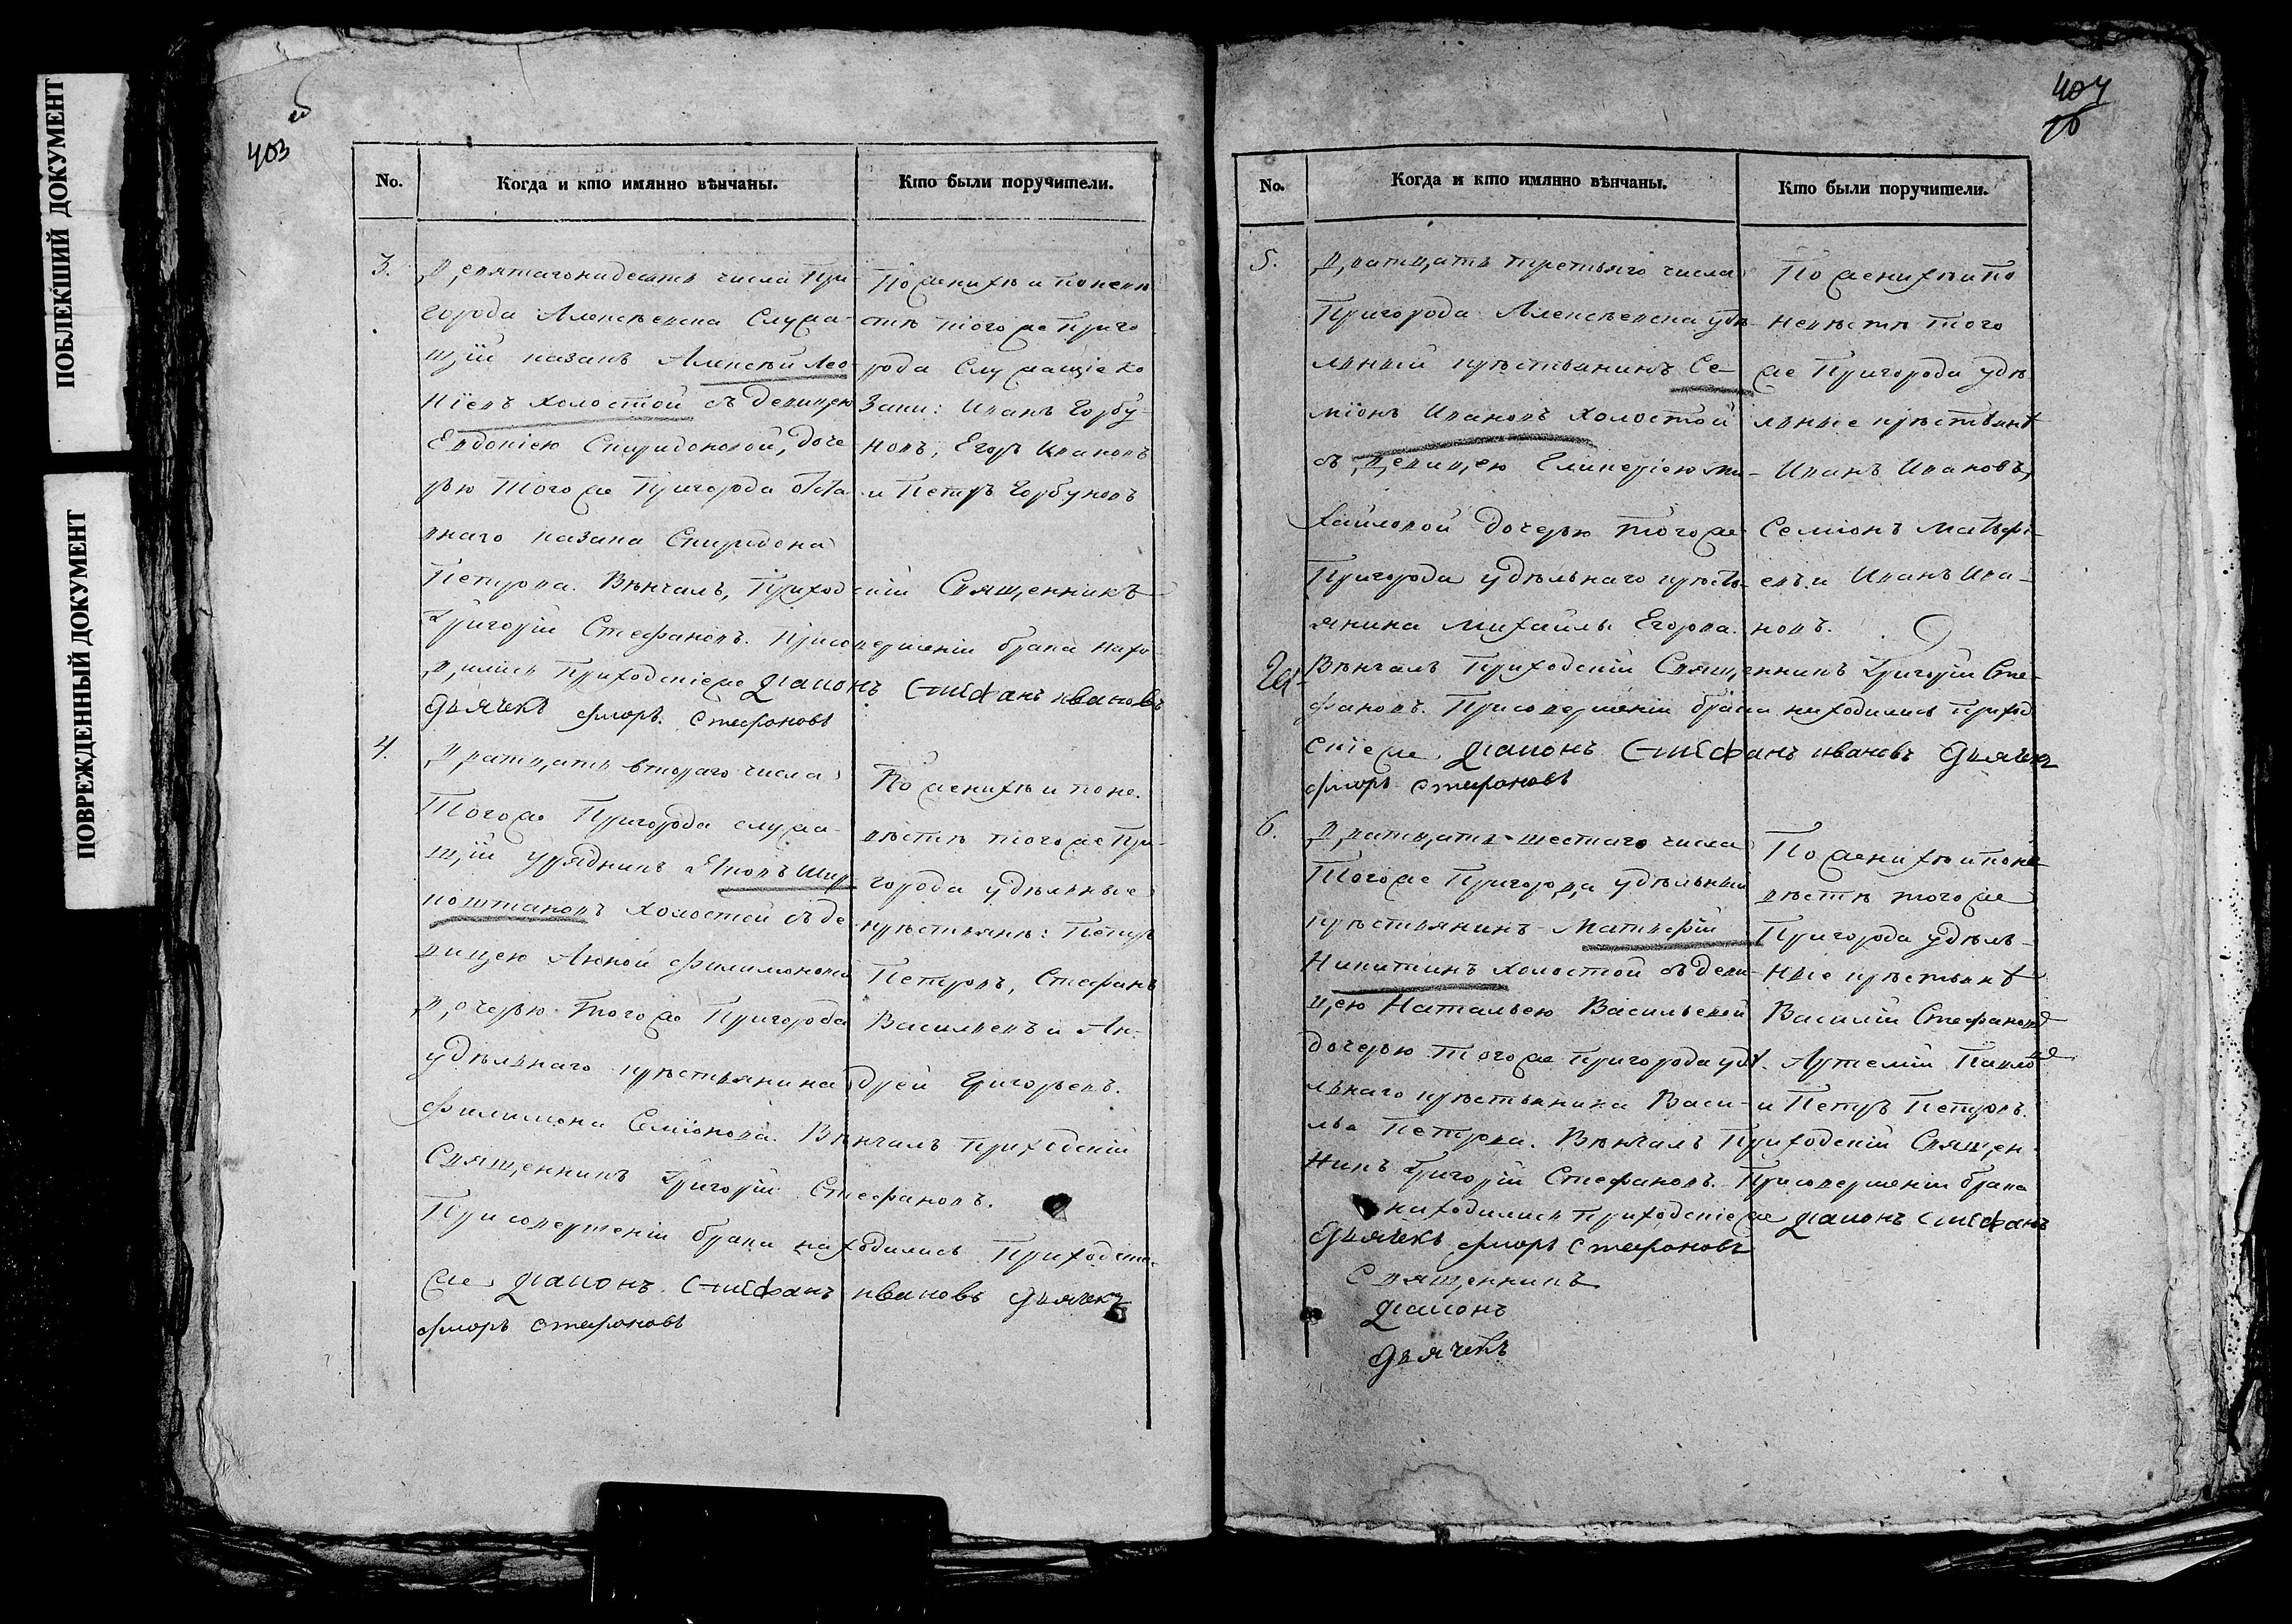 ПОБЛЕКШИЙ ДОКУМЕНТ
ПОВРЕЖДЕННЫЙ ДОКУМЕНТ
403
No.
Когда и кто имянно вѣнчаны.
Кто были поручители.
3.
Девятагонадесять числа При-
города Алексѣевска Служа-
щій казакъ Алексѣй Лео
нтіевъ холостой съ девицею
Евдокіею Спиридоновой, доче
рью того же Пригорода отста
внаго казака Спиридона
Петрова. Вѣнчалъ, Приходскій Священникъ
Григорій Стефановъ. Присовершеніи брака нахо
дились Приходскіеже диаконъ Стефанъ ивановъ
дьячекъ флоръ. Стефановъ
По женихѣ и поневѣ
стѣ того же приго
рода Служащіе ко
заки: Иванъ Горбу-
новъ, Егоръ Ивановъ
и Петръ Горбуновъ
4.
Дватцать втораго числа
Тогоже Пригорода служа-
щій урядникъ Яковъ
холостой съ де-
вицею Анной Филимоновой
дочерью Того же Пригорода
удѣльнаго крѣстьянина
Филимона Семіонова. Вѣнчалъ Приходскій
Священникъ Григорій Стефановъ.
При совершеніи брака находились Приходскіе
же диаконъ Стефанъ ивановъ дьячекъ
флоръ Стефановъ
По женихѣ и поне-
вѣстѣ того же При-
города удѣльные
крѣстьянѣ: Петръ
Петровъ, Стефанъ
Васильевъ и Ан-
дрей Григорьевъ.
404
No.
Когда и кто имянно вѣнчаны.
Кто были поручители.
5.
Дватцать третьяго числа
Пригорода Алексѣевска удѣ-
льный крѣстьянинъ Се-
міонъ Ивановъ холостой
съ девицею Гликеріею Ми-
хайловой дочерью того же
Пригорода удѣльнаго крѣсть-
янина Михайлы Егорова.
Вѣнчалъ Приходскій Священникъ Григорій Сте-
фановъ. Присовершеніи брака находились Приход
скіеже диаконъ Стефанъ ивановъ дьячекъ
флоръ Стефановъ
По женихѣ и по
невѣстѣ того
же Пригорода удѣ
льные крѣстьянѣ
Иванъ Ивановъ,
Семіонъ Матвѣ-
евъ и Иванъ Ива-
новъ.
6.
Дватцать шестаго числа
Тогоже Пригорода удѣльный
крѣстьянинъ Матвѣй
Никитинъ холостой съ деви-
цею Натальею Васильевой
дочерью того же пригорода удѣ-
льнаго крѣстьянина Васи-
лья Петрова. Вѣнчалъ Приходскій Священ-
никъ Григорій Стефановъ. Присовершеніи брака
находились приходскіе же диаконъ Стефанъ
дьячекъ флоръ Стефановъ
По женихѣ и поне
вѣстѣ тогоже
Пригорода удѣль-
ные крѣстьянѣ
Василій Стефановъ
Артемій Павловъ
и Петръ Петровъ.
Священникъ
диаконъ
дьячекъ